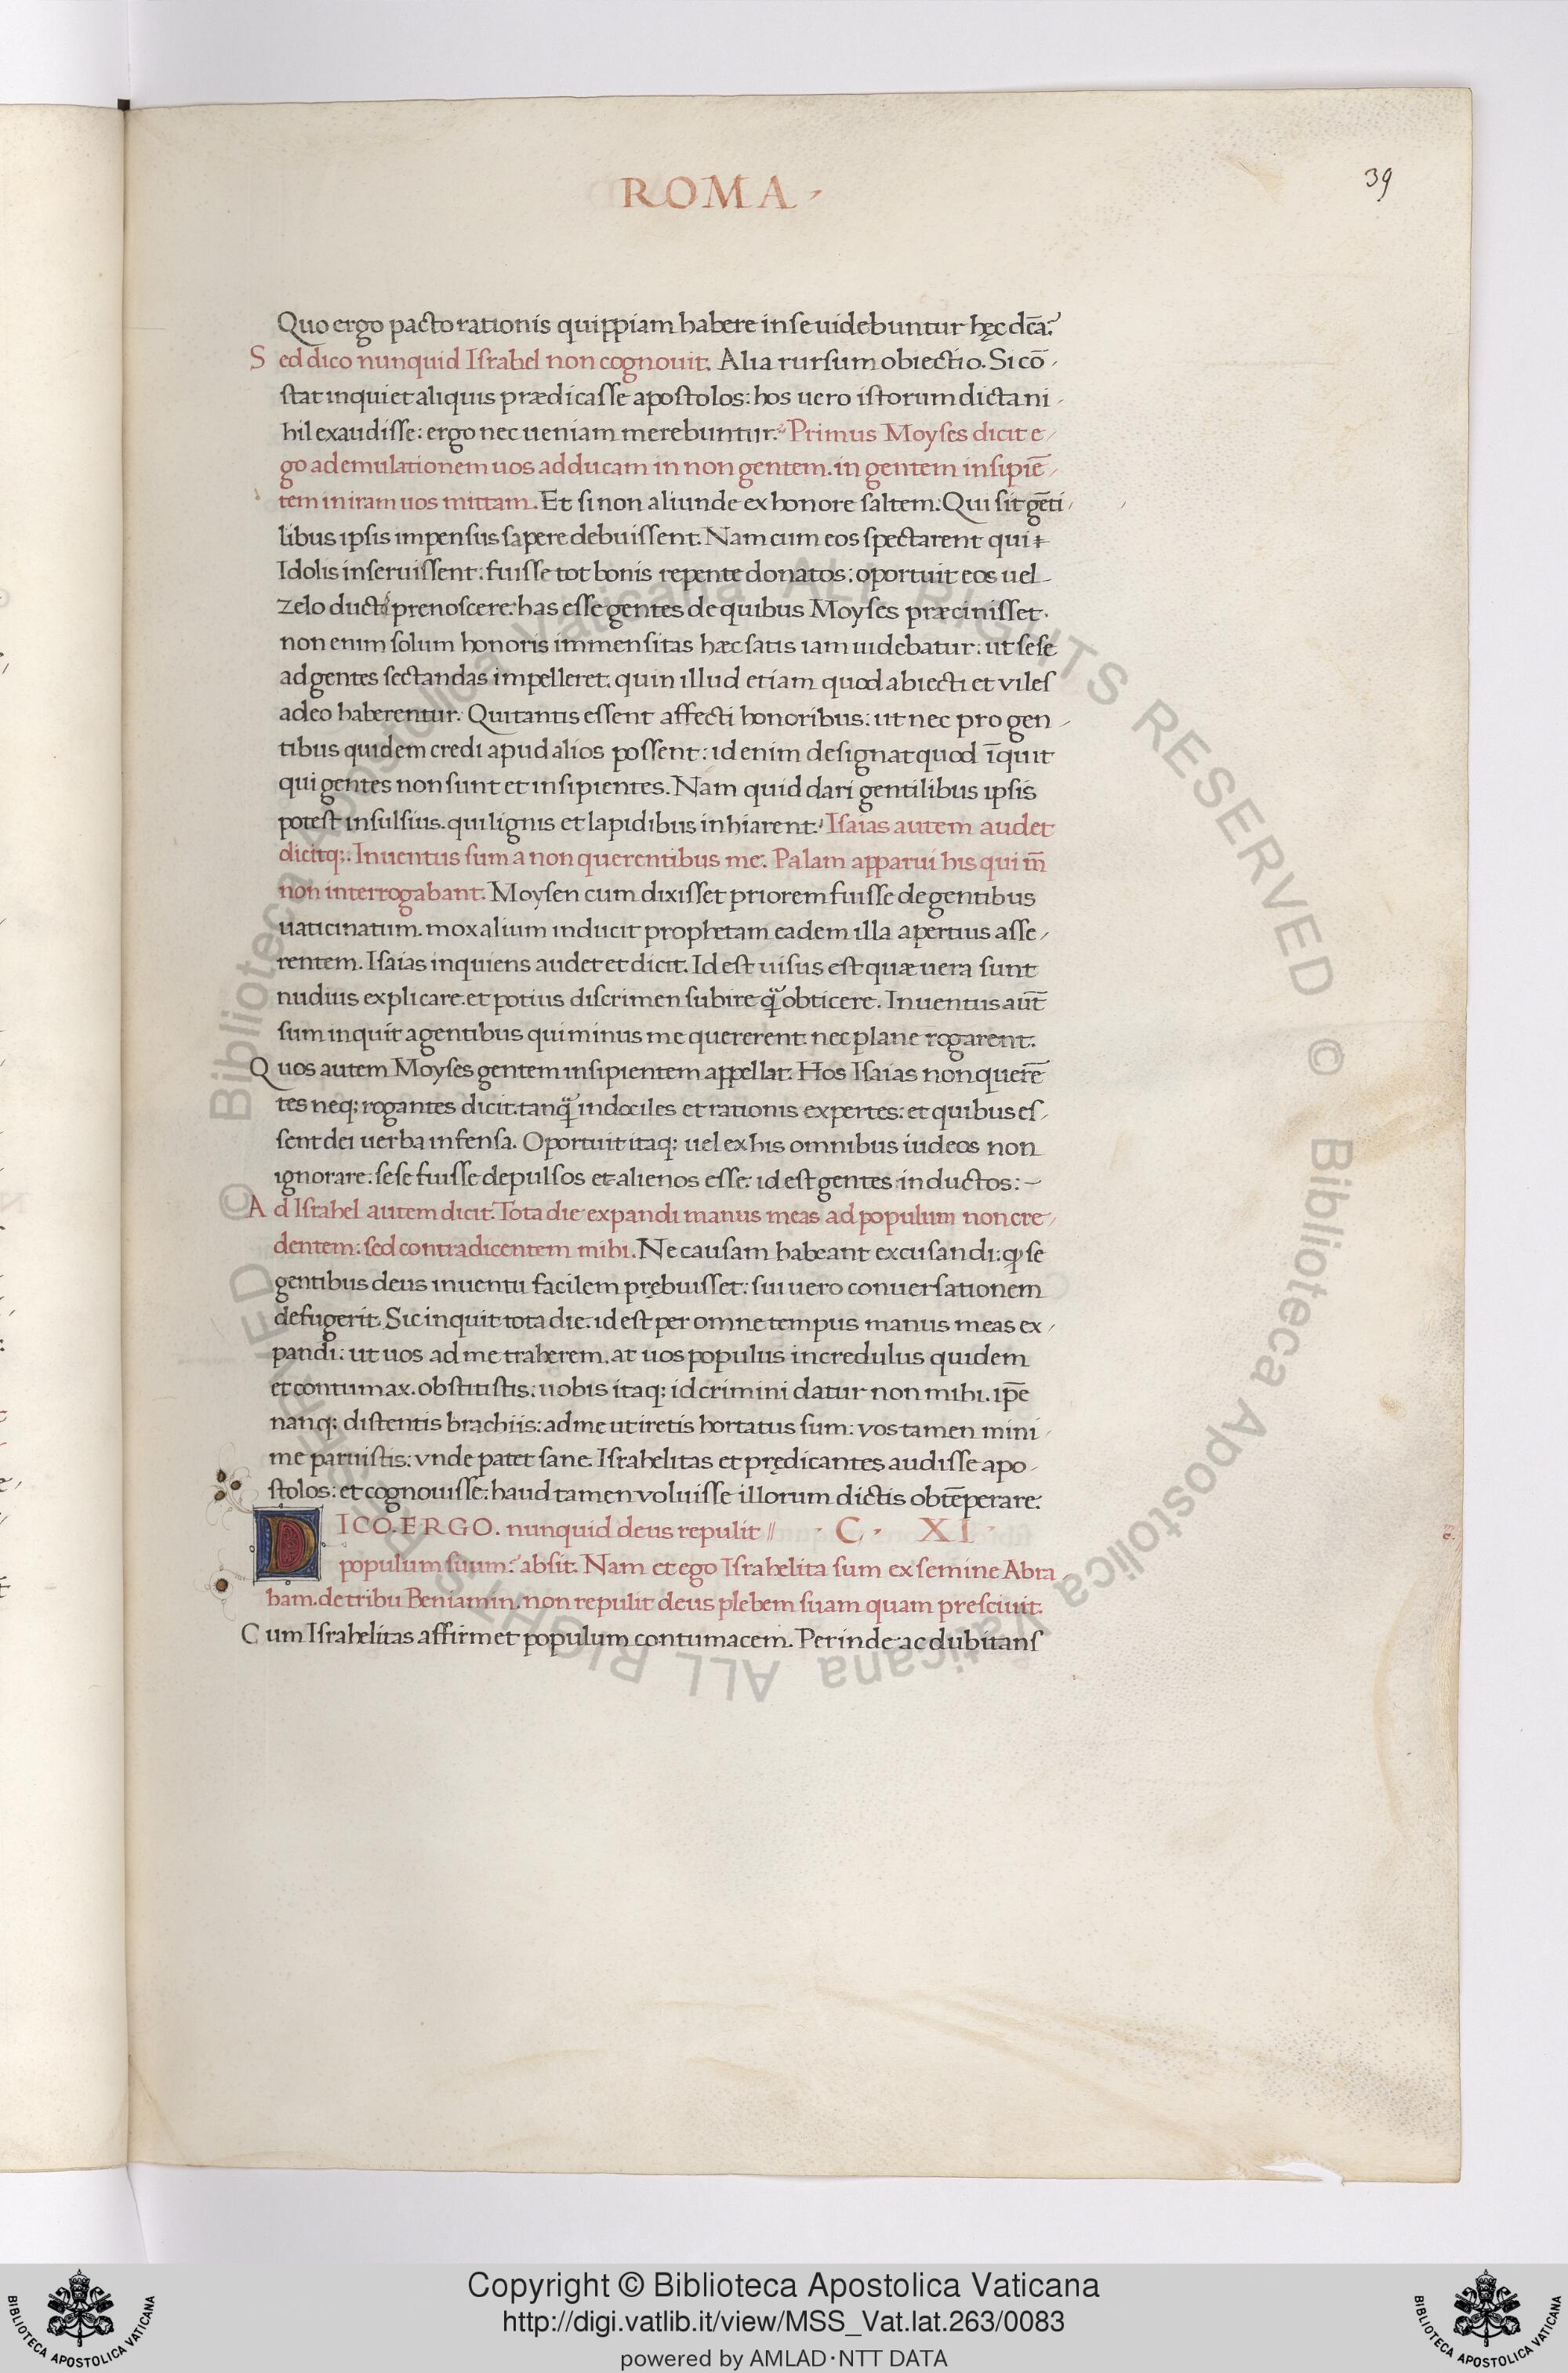 ROMA
39
Quo ergo pacto rationis quippiam habere in se uidebuntur hęc dc̄a?
Sed dico nunquid Israhel non cognouit. Alia rursum obiectio. Si cō-
stat inquiet aliquis prædicasse apostolos: hos uero istorum dicta ni-
hil exaudisse: ergo nec ueniam merebuntur. Primus Moyses dicit e-
go ad emulationem uos adducam in non gentem. in gentem insipiē-
tem in iram uos mittam. Et si non aliunde ex honore saltem: Qui sit gēti-
libus ipsis impensus sapere debuissent. Nam cum eos spectarent qui
Idolis inseruissent: fuisse tot bonis repente donatos: oportuit eos uel
zelo ducti prenoscere: has esse gentes de quibus Moyses præcinisset.
non enim solum honoris immensitas hæc satis iam uidebatur: ut sese
ad gentes sectandas impelleret. quin illud etiam quod abiecti et viles
adeo haberentur: Qui tantis essent affecti honoribus: ut nec pro gen-
tibus quidem credi apud alios possent: id enim designat quod īquit
qui gentes non sunt et insipientes. Nam quid dari gentilibus ipsis
potest insulsius. qui lignis et lapidibus inhiarent. Isaias autem audet
dicitq;. Inuentus sum a non querentibus me. Palam apparui his qui m̄
non interrogabant. Moysen cum dixisset priorem fuisse de gentibus
uaticinatum. mox alium inducit prophetam eadem illa apertius asse-
rentem. Isaias inquiens audet et dicit. Id est uisus est quæ uera sunt
nudius explicare. et potius discrimen subire q̃ obticere. Inuentus aut̄
sum inquit a gentibus qui minus me quererent. nec plane rogarent.
Quos autem Moyses gentem insipientem appellat. Hos Isaias non querē
tes neq; rogantes dicit. tanq̃ indociles et rationis expertes: et quibus es-
sent dei uerba infensa. Oportuit itaq; uel ex his omnibus iudeos non
ignorare: sese fuisse depulsos et alienos esse. id est gentes inductos:~
Ad Israhel autem dicit. Tota die expandi manus meas ad populum non cre-
dentem: sed contradicentem mihi. Ne causam habeant excusandi: ꝙ se
gentibus deus inuentu facilem prębuisset: sui uero conuersationem
defugerit. Sic inquit tota die. id est per omne tempus manus meas ex-
pandi: ut uos ad me traherem. at uos populus incredulus quidem
et contumax. obstitistis: uobis itaq; id crimini datur non mihi. ip̄e
nanq; distentis brachiis: ad me ut iretis hortatus sum: vos tamen mini-
me paruistis: vnde patet sane. Israhelitas et prędicantes audisse apo-
stolos: et cognouisse: haud tamen voluisse illorum dictis obtēperare.
DICO. ERGO. nunquid deus repulit // · C · XI ·
populum suum? absit. Nam et ego Israhelita sum ex semine Abra
ham. de tribu Beniamin. non repulit deus plebem suam quam presciuit.
Cum Israhelitas affirmet populum contumacem. Perinde ac dubitans
© Biblioteca Apostolica Vaticana ALL RIGHTS RESERVED © Biblioteca Apostolica Vaticana ALL RIGHTS RESERVED
Copyright © Biblioteca Apostolica Vaticana
http://digi.vatlib.it/view/MSS_Vat.lat.263/0083
powered by AMLAD·NTT DATA
BIBLIOTECA APOSTOLICA VATICANA
BIBLIOTECA APOSTOLICA VATICANA